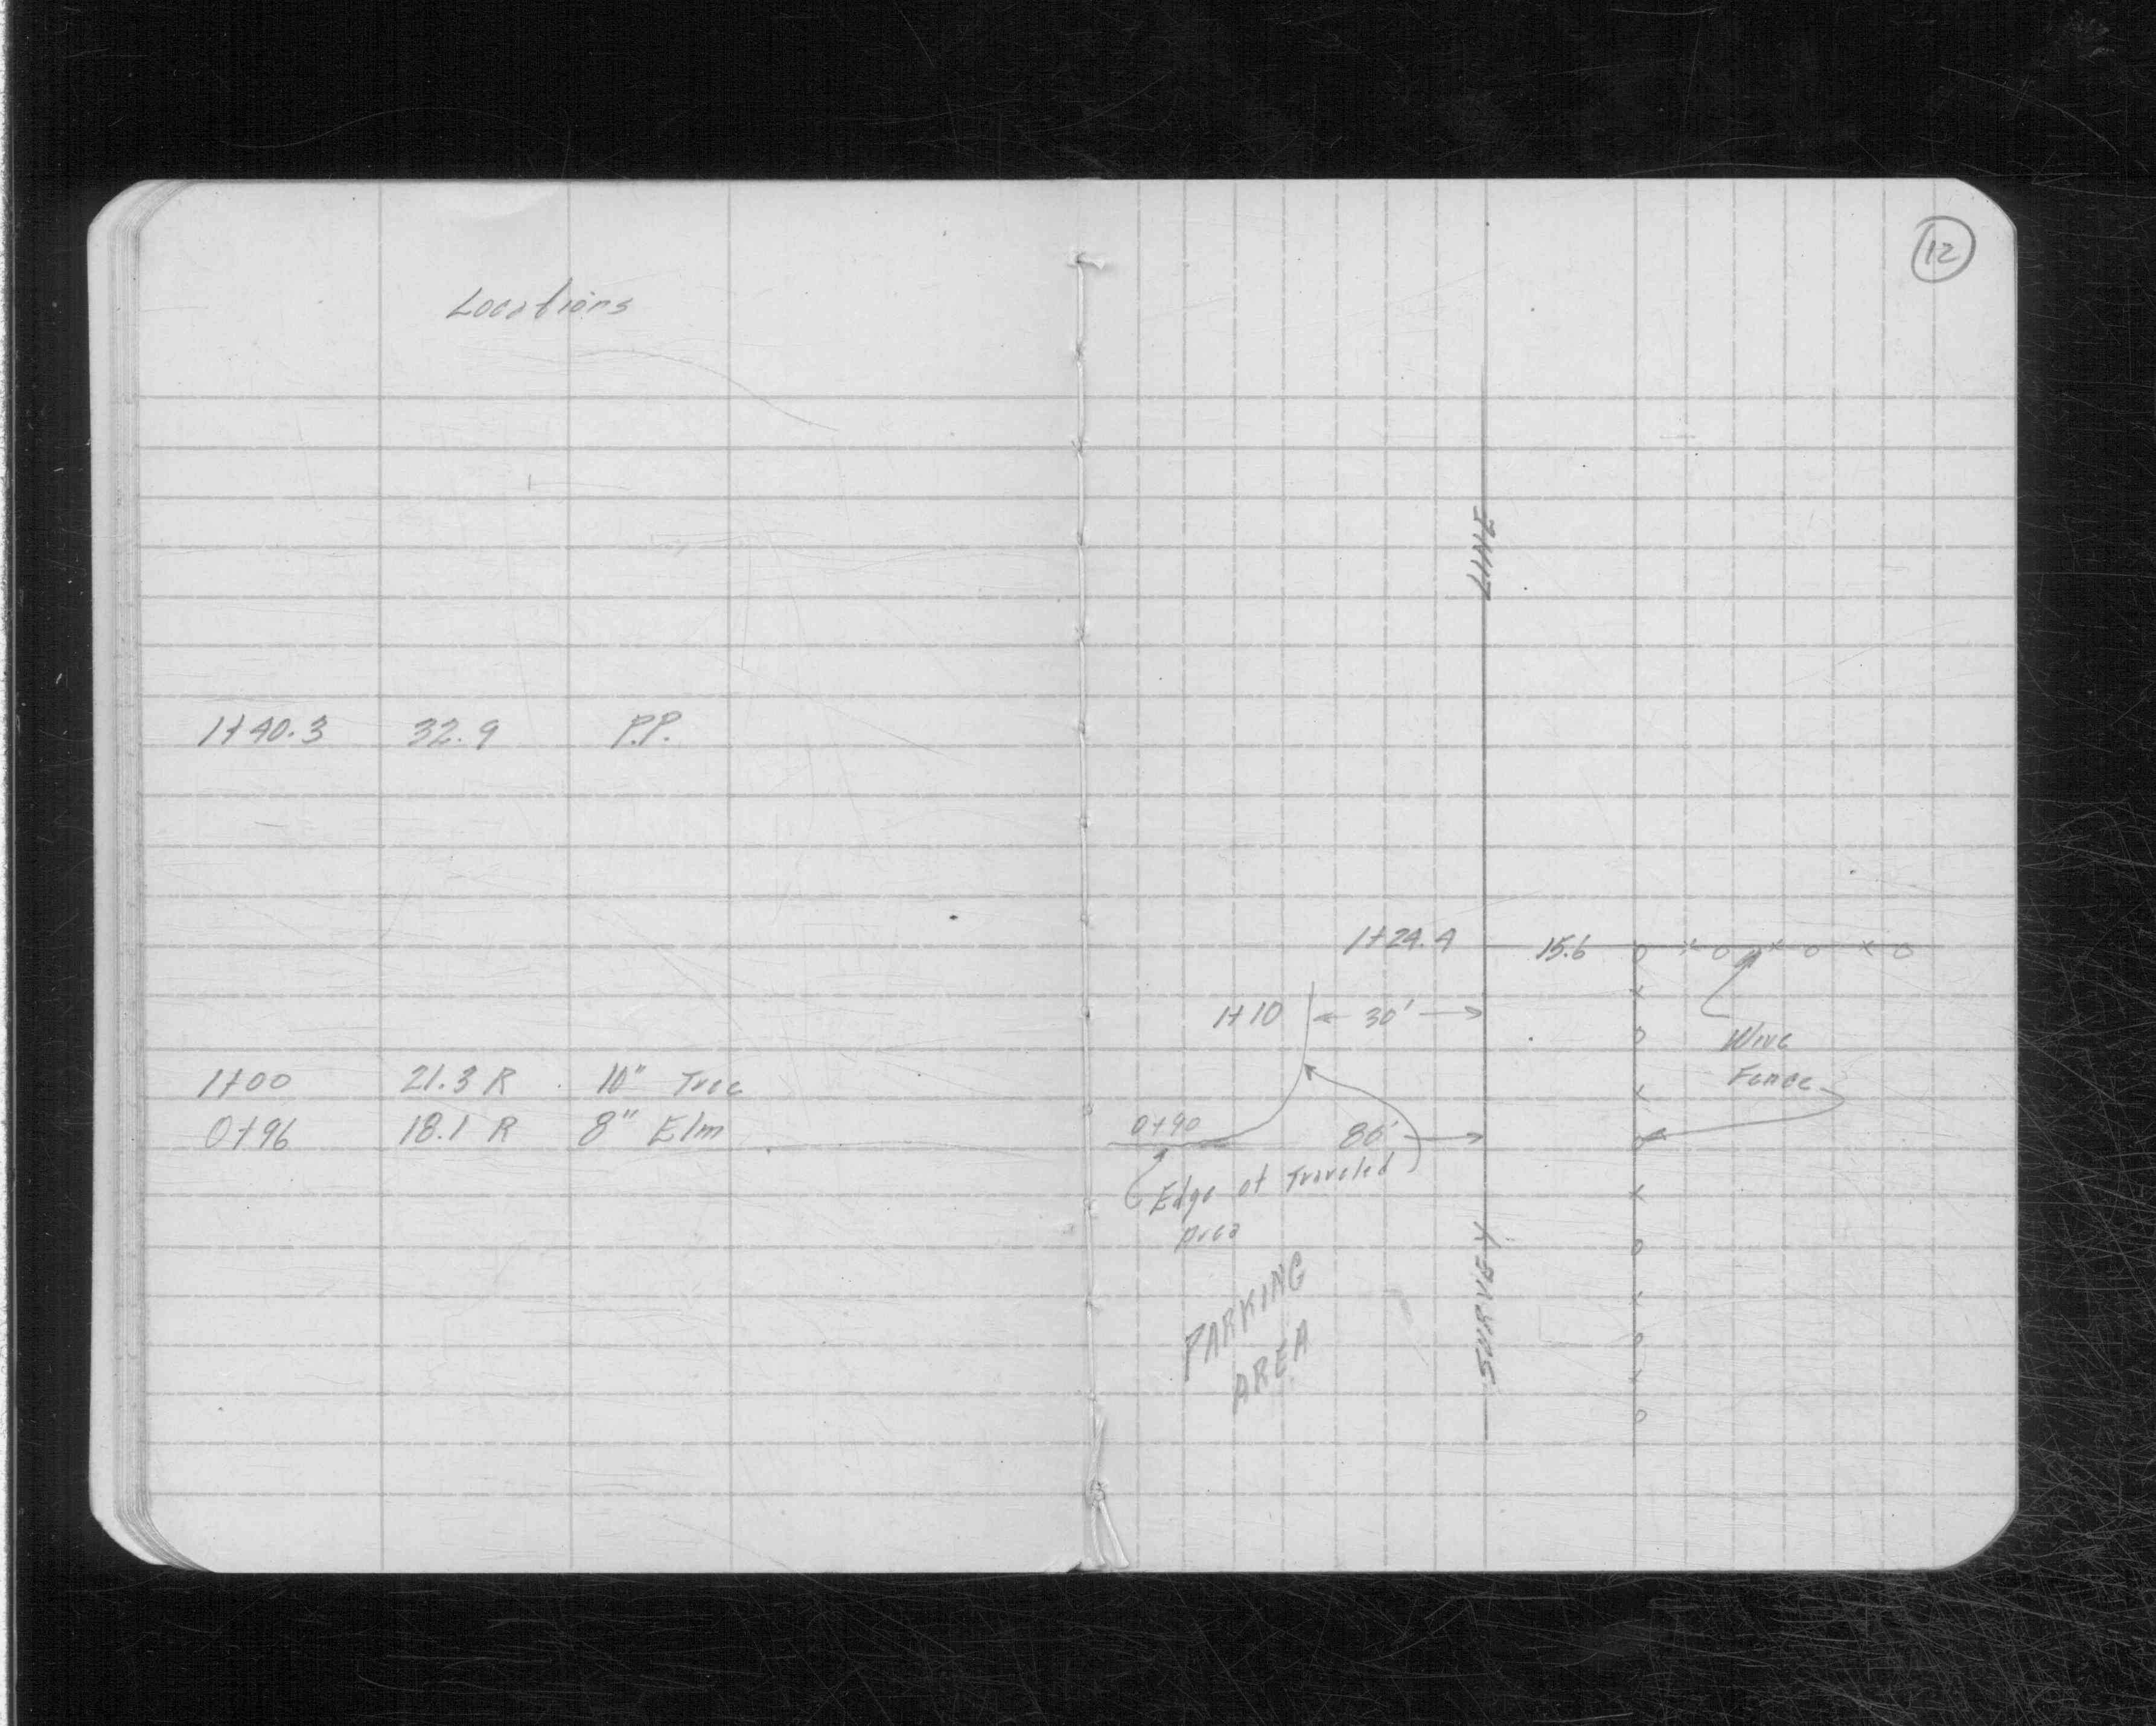 Locations
1+40.3 32.9 P.P.
1+00 21.3 R 10" Tree
0+96 18.1 R 8" Elm
12
LINE
1+24.4 15.6
1+10 30'
Wire
Fence
0+90 80'
Edge of Traveled
Area
PARKING
AREA
SURVEY